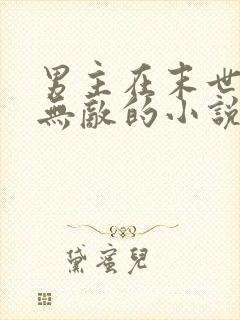 男主在末世
無敵的小說
黛蜜兒